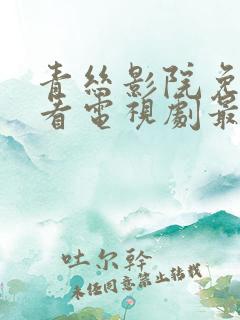 青丝影院免
看电视剧最
吐尔干
未经同意禁止转载